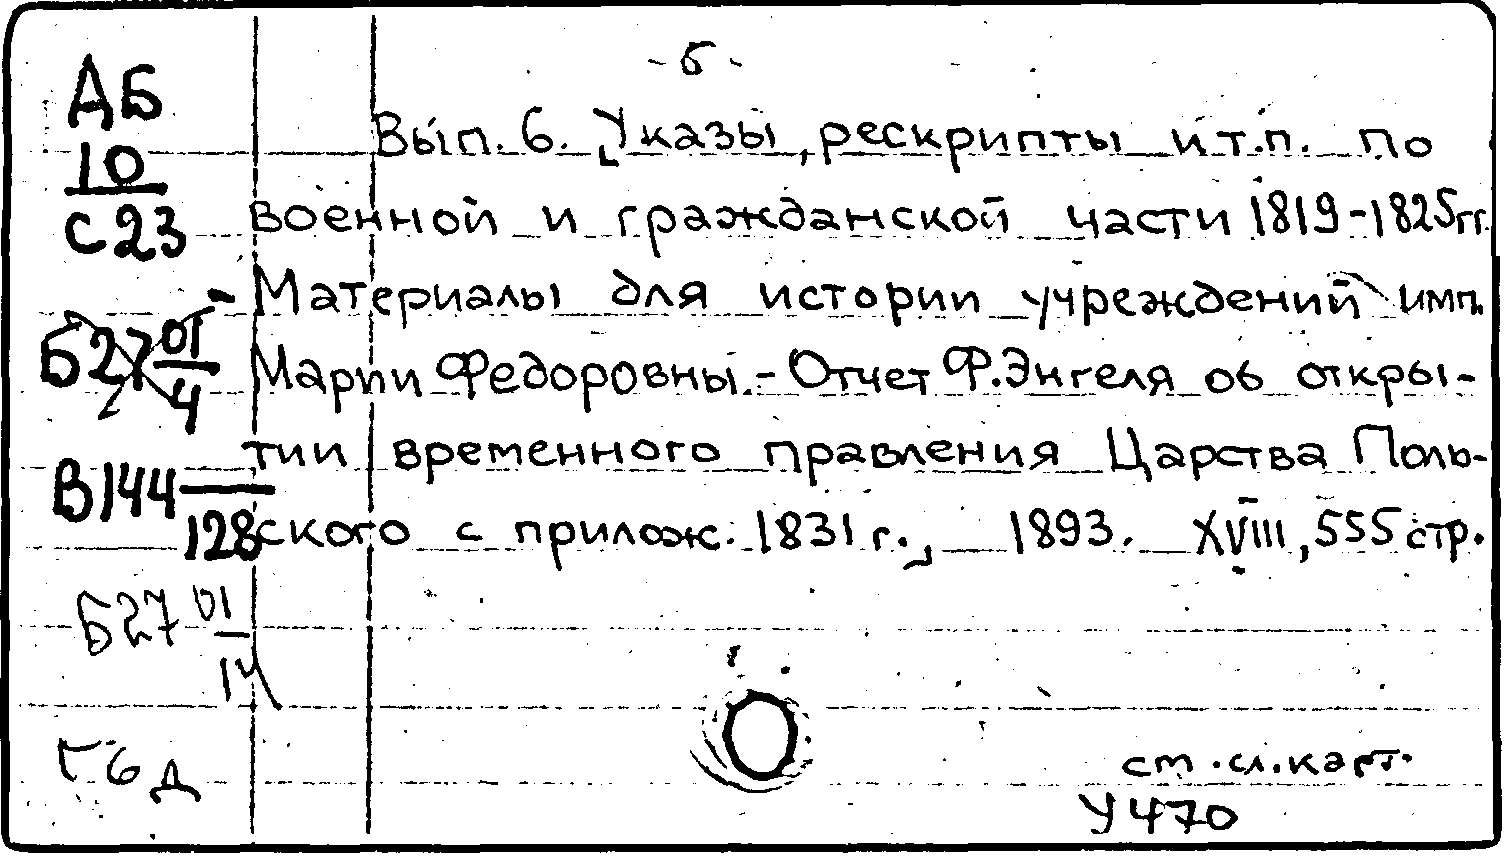 - 5 -
АБ
10
С23
Вып. 6. Указы, рескрипты и т.п. по
военной и гражданской части 1819-1825 гг.
- Материалы для истории учреждений имп.
Марии Федоровны. - Отчет Ф. Энгеля об откры-
тии временного правления Царства Поль-
ского с прилож. 1831 г., 1893. XVIII, 555 стр.
Б27 01
4
В144
128
Б27 01
14
Г6д
ст. сл. карт.
У470